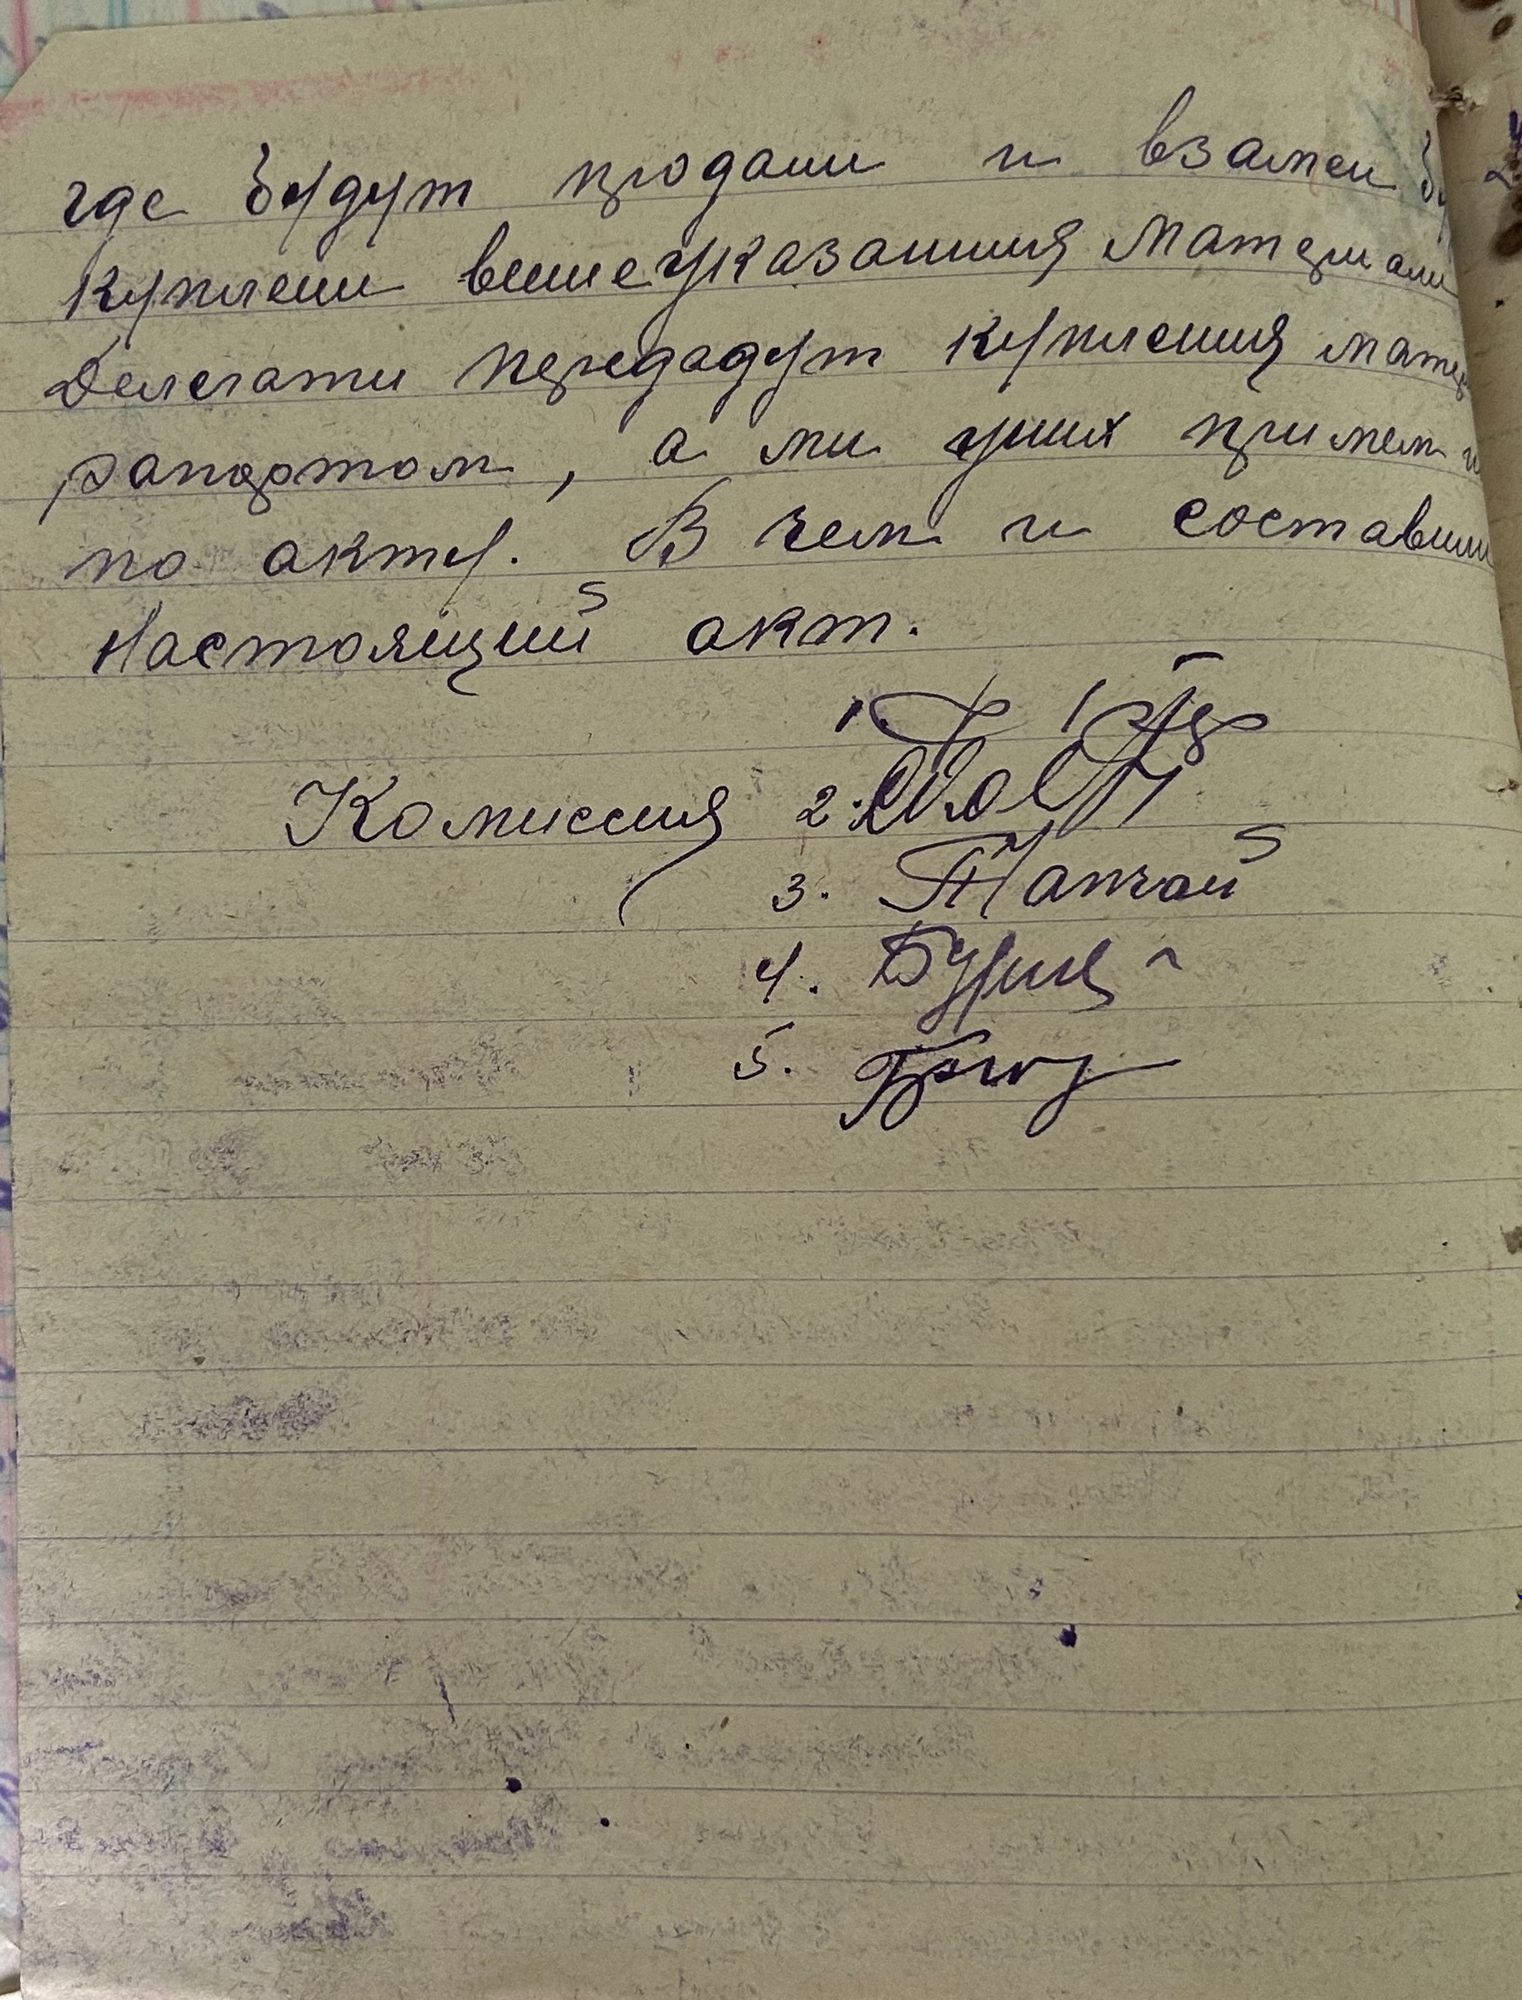 где будут продани и взамен
куплени вишеуказанния материали
Делегати передадут купления матер
рапортом, а ми уних примем и
по акту. В чем и составили
Настоящий акт.
1.
Комиссия 2.
3. Тапчай
4.
5.